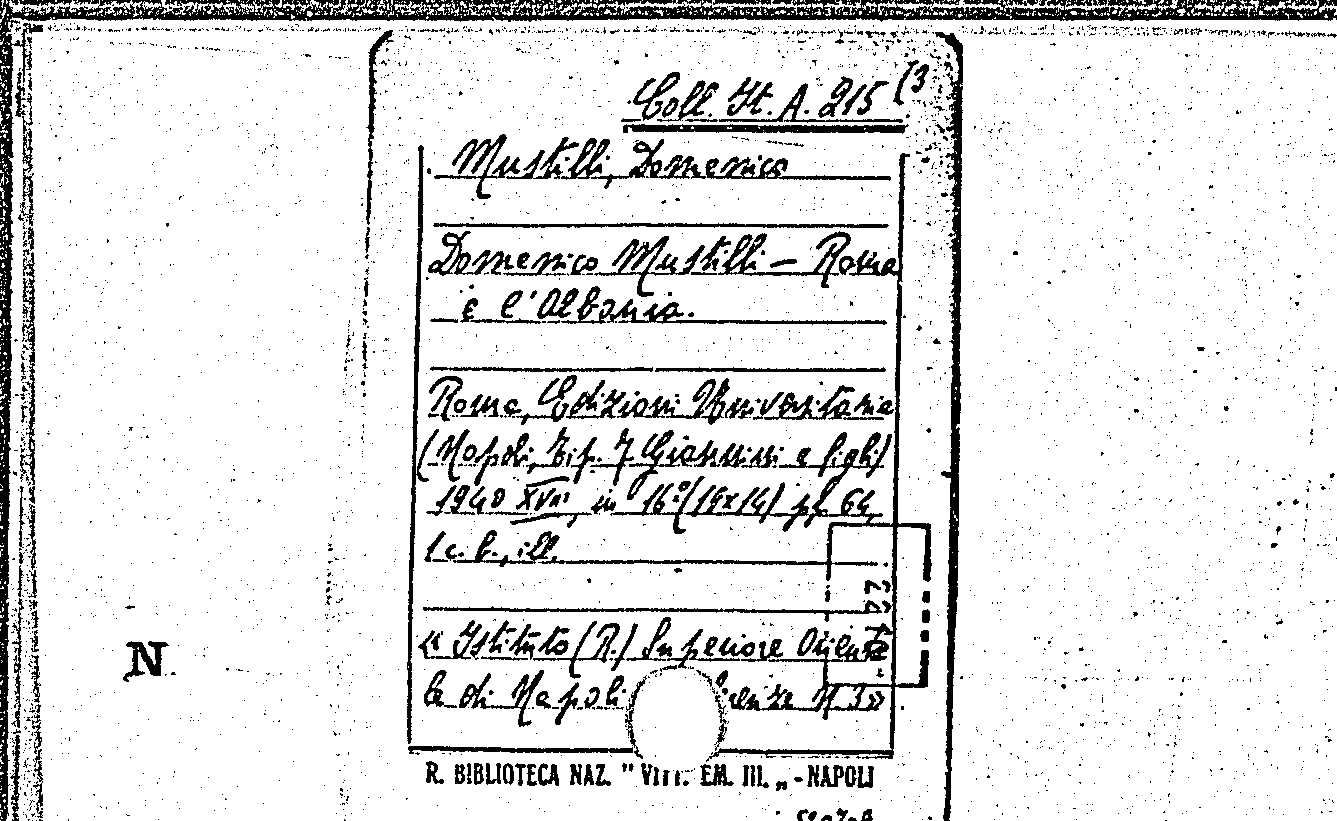 Coll. It. A. 215 (3
Mustilli, Domenico
Domenico Mustilli — Roma
e l'Albania.
Roma, Edizioni Universitarie
(Napoli, Tip. F. Giannini e figli)
1940 XVIII, in 16°(19x14) pp. 64,
1 c. b., ill.
« Istituto (R.) Superiore Orienta
le di Napoli
N 3»
N
R. BIBLIOTECA NAZ. " VITT. EM. III. „ - NAPOLI